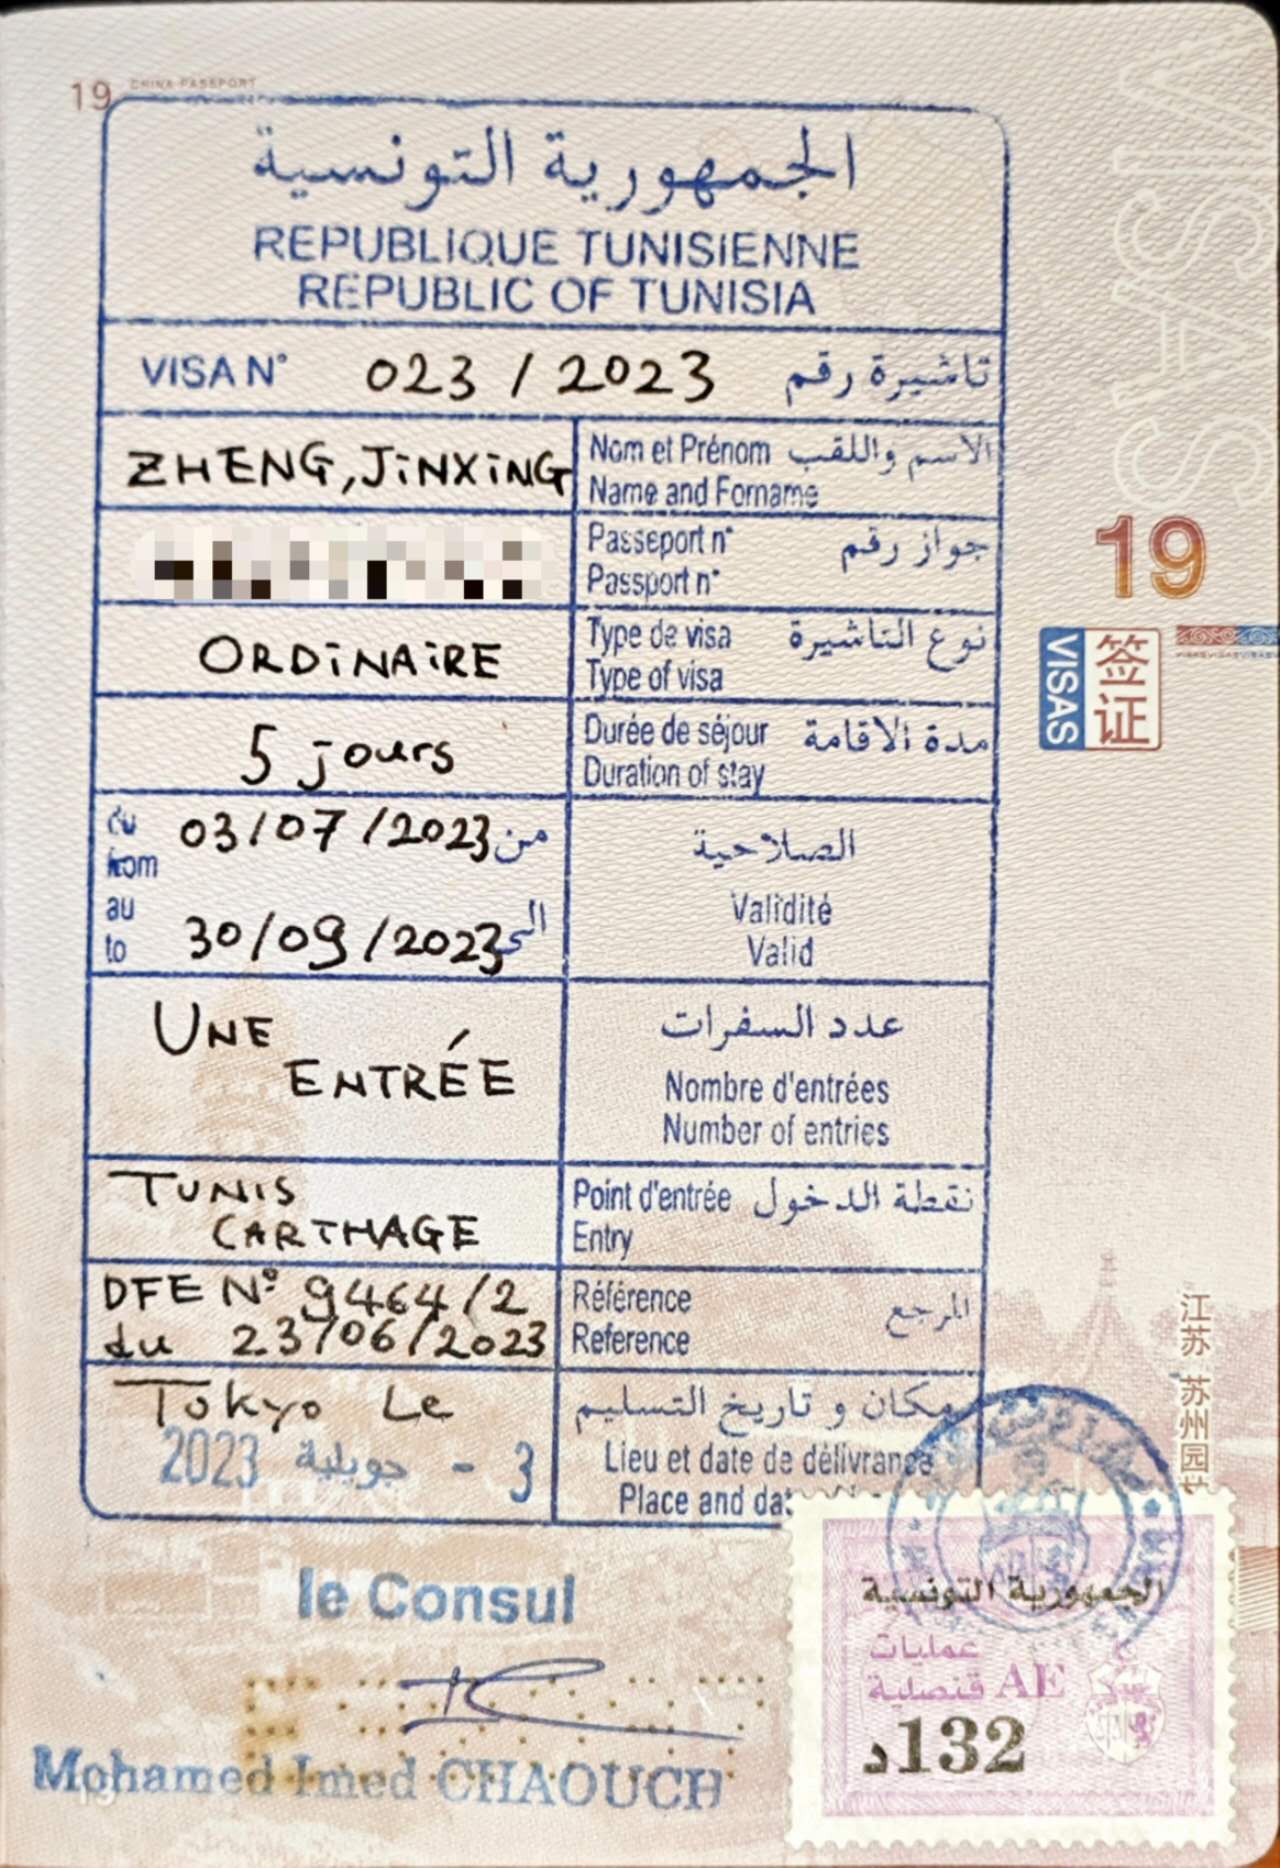 19 CHINA PASSPORT
الجمهورية التونسية
REPUBLIQUE TUNISIENNE
REPUBLIC OF TUNISIA
VISA N° 023 / 2023 تاشيرة رقم
ZHENG, JiNXiNG
Nom et Prénom الاسم واللقب
Name and Forname
Passeport n° جواز رقم
Passport n°
ORDiNAiRE
Type de visa نوع التاشيرة
Type of visa
5 jours
Durée de séjour مدة الاقامة
Duration of stay
du 03/07/2023 من
from
au 30/09/2023 الى
to
الصلاحية
Validité
Valid
UNE
ENTRÉE
عدد السفرات
Nombre d'entrées
Number of entries
TUNIS
CARTHAGE
Point d'entrée نقطة الدخول
Entry
DFE N° 9464/2
du 23/06/2023
Référence المرجع
Reference
Tokyo Le
2023 جويلية - 3
مكان و تاريخ التسليم
Lieu et date de délivrance
Place and dat
le Consul
Mohamed Imed CHAOUCH
الجمهورية التونسية
عمليات
قنصلية AE
132د
VISAS
19
VISAS
签证
江苏 苏州园